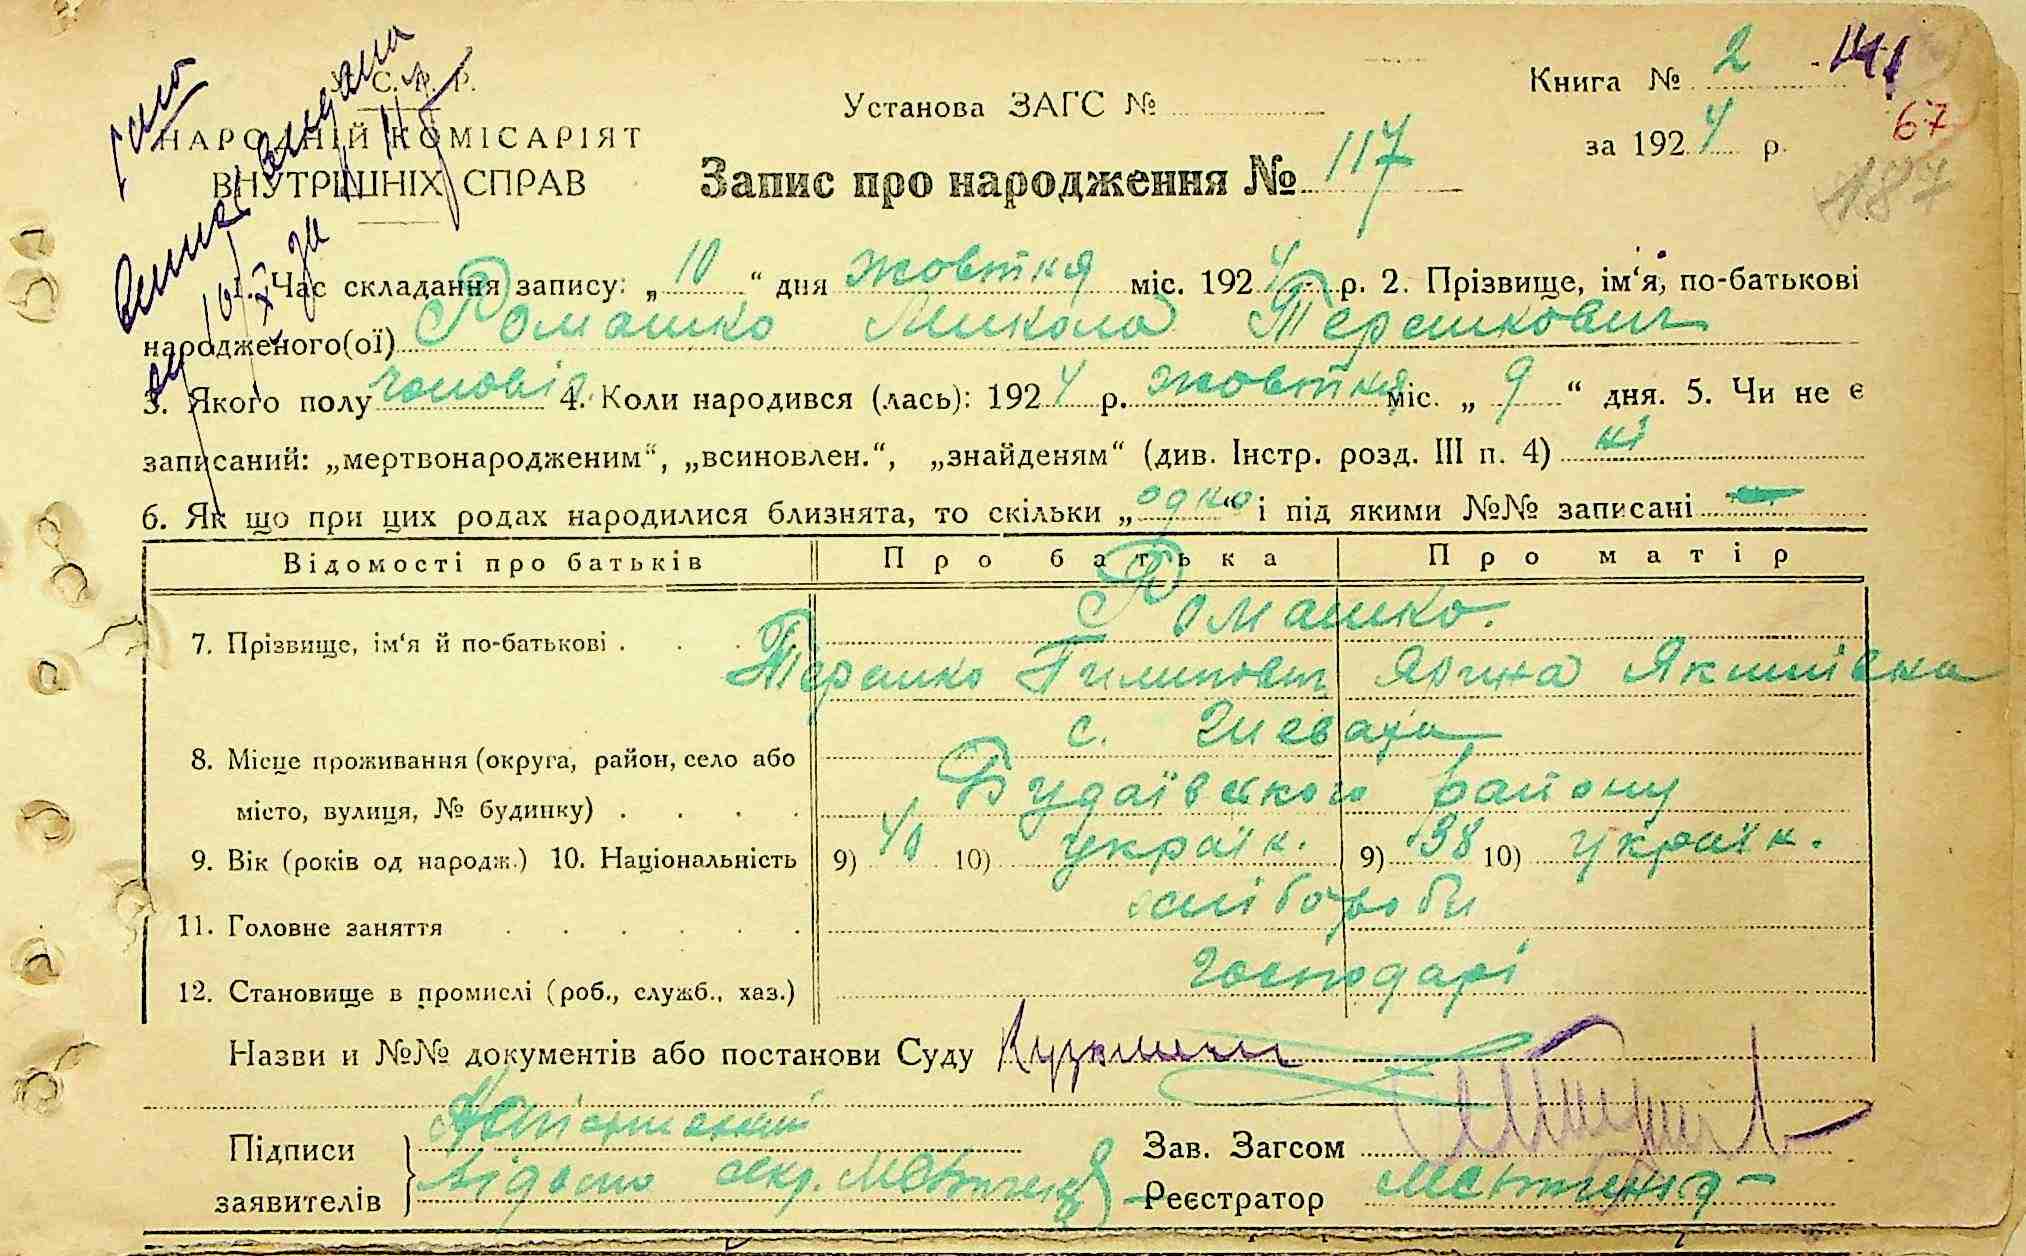 С. Р. Р.
НАРОДНІЙ КОМІСАРІЯТ
ВНУТРІШНІХ СПРАВ
Установа ЗАГС №
Книга № 2
141
за 1924 р.
67
187
Запис про народження № 117
1. Час складання запису: „10“ дня жовтня міс. 1924 р. 2. Прізвище, ім‘я, по-батькові
народженого(ої) Ромашко Микола Терешкович
3. Якого полу чоловіч. 4. Коли народився (лась): 1924 р. жовтня міс. „9“ дня. 5. Чи не є
записаний: „мертвонародженим“, „всиновлен.“, „знайденям“ (див. Інстр. розд. III п. 4) ні
6. Як що при цих родах народилися близнята, то скільки „одно“ і під якими №№ записані —
Відомості про батьків
Про батька
Про матір
7. Прізвище, ім‘я й по-батькові
Ромашко.
Терешко Пилипович Ярина Якимівна
8. Місце проживання (округа, район, село або
місто, вулиця, № будинку)
с. Глеваха
Будаївського району
9. Вік (років од народж.) 10. Національність
9) 40 10) україн. 9) 38 10) україн.
11. Головне заняття
хлібороби
12. Становище в промислі (роб., служб., хаз.)
господарі
Назви и №№ документів або постанови Суду
Підписи
заявителів
секр.
Зав. Загсом
Реєстратор